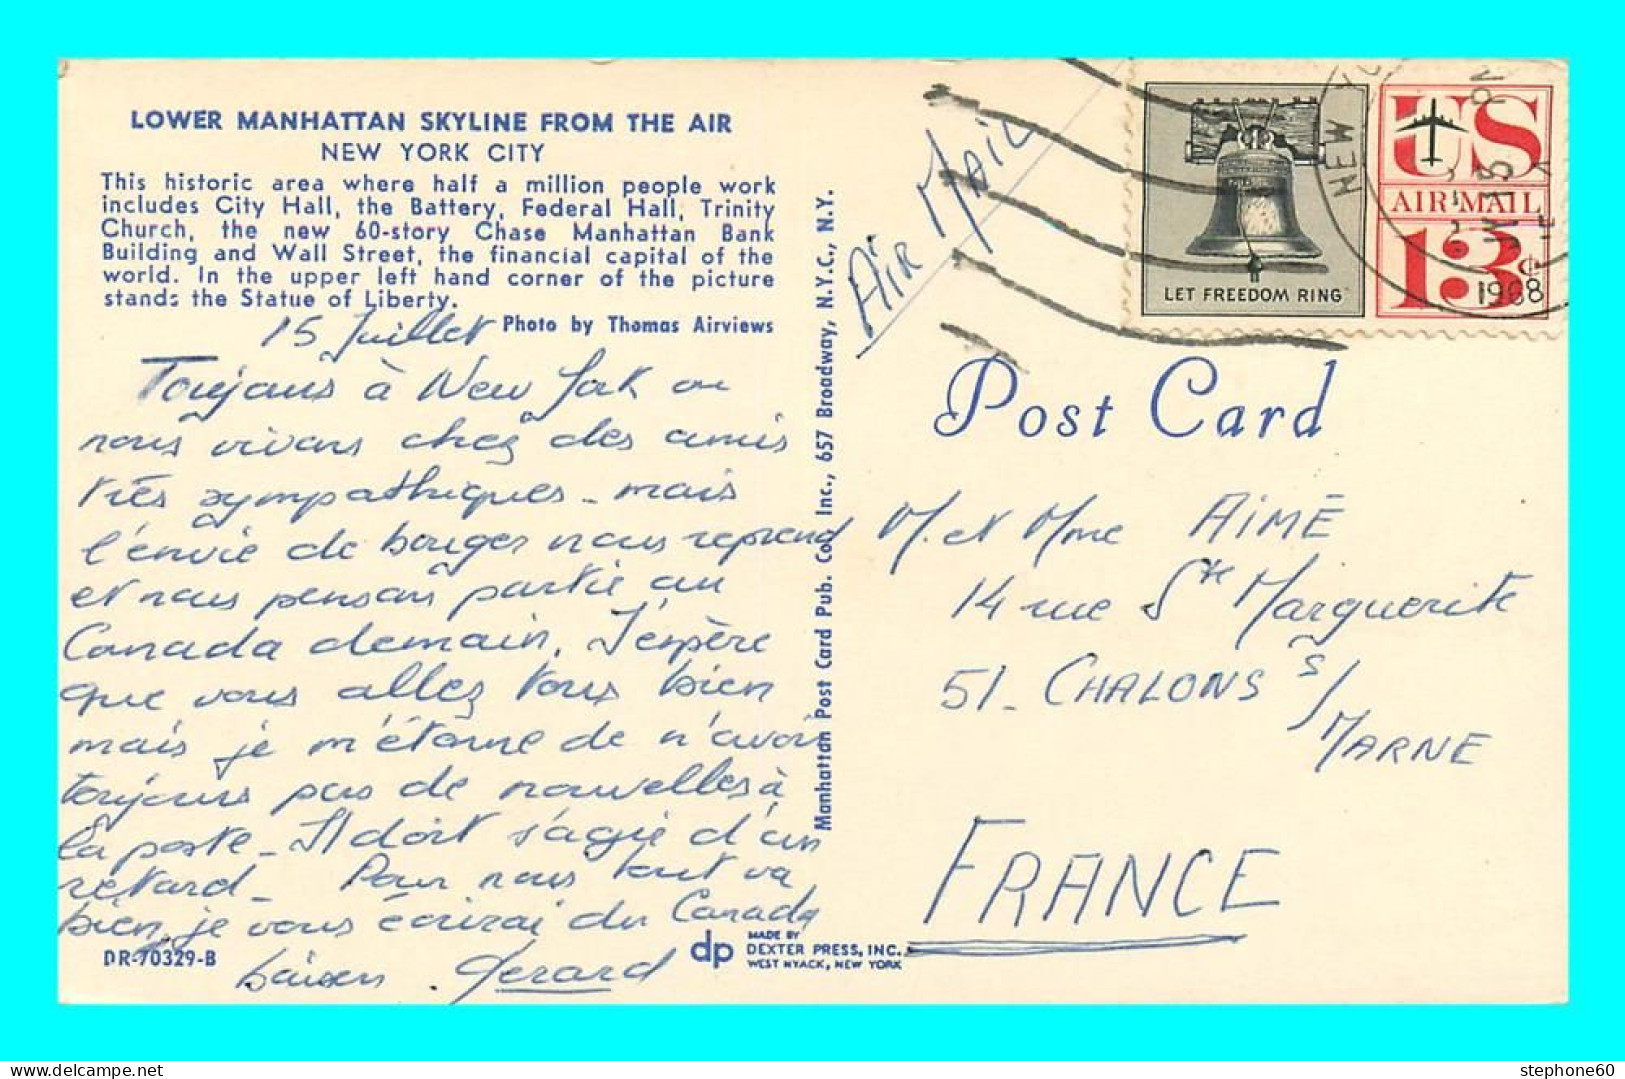 LOWER MANHATTAN SKYLINE FROM THE AIR
NEW YORK CITY
This historic area where half a million people work
includes City Hall, the Battery, Federal Hall, Trinity
Church, the new 60-story Chase Manhattan Bank
Building and Wall Street, the financial capital of the
world. In the upper left hand corner of the picture
stands the Statue of Liberty.
Photo by Thomas Airviews
15 Juillet
Toujours à New York ou
nous vivons chez des amis
très sympathiques - mais
l'envie de bouger nous reprend
et nous pensons partir au
Canada demain. J'espère
que vous allez tous bien
mais je m'étonne de n'avoir
toujours pas de nouvelles à
la poste - Il doit s'agir d'un
retard - Pour nous tout va
bien, je vous écrirai du Canada
baisers. Gerard
DR-70329-B
dp
MADE BY
DEXTER PRESS, INC.
WEST NYACK, NEW YORK
Manhattan Post Card Pub. Co., Inc., 657 Broadway, N.Y.C., N.Y.
AIR MAIL
LET FREEDOM RING
US
AIR MAIL
13¢
NEW
1968
Post Card
M. et Mme AIMÉ
14 rue Ste Marguerite
51 - CHALONS s/
MARNE
FRANCE
stephone60